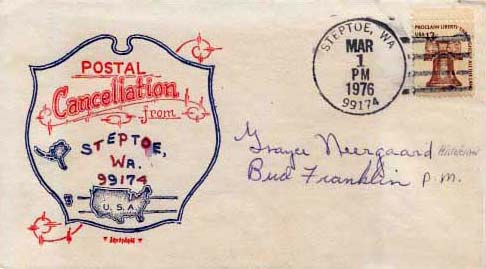 POSTAL
Cancellation
from
STEPTOE,
Wa.
99174
U.S.A.
STEPTOE, WA
MAR
1
PM
1976
99174
PROCLAIM LIBERTY
USA 13
Grayce Neergaard
Bud Franklin P.M.